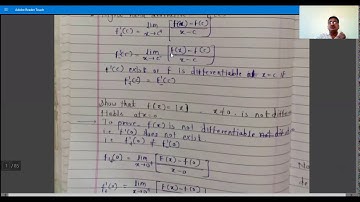 Adobe Reader Touch
f'₊(c) = lim x→c⁺ [f(x)-f(c) / x-c]
f'₋(c) = lim x→c⁻ [f(x)-f(c) / x-c]
f'(c) exist or f is differentiable at x=c if
f'₊(c) = f'₋(c)
Show that f(x)=|x| is not differen
tiable at x=0
To prove f(x) is not differentiable
i.e f'(0) does not exist
i.e f'₊(0) ≠ f'₋(0)
lim [f(x)-f(0) / x-0]
lim [f(x)-f(0)